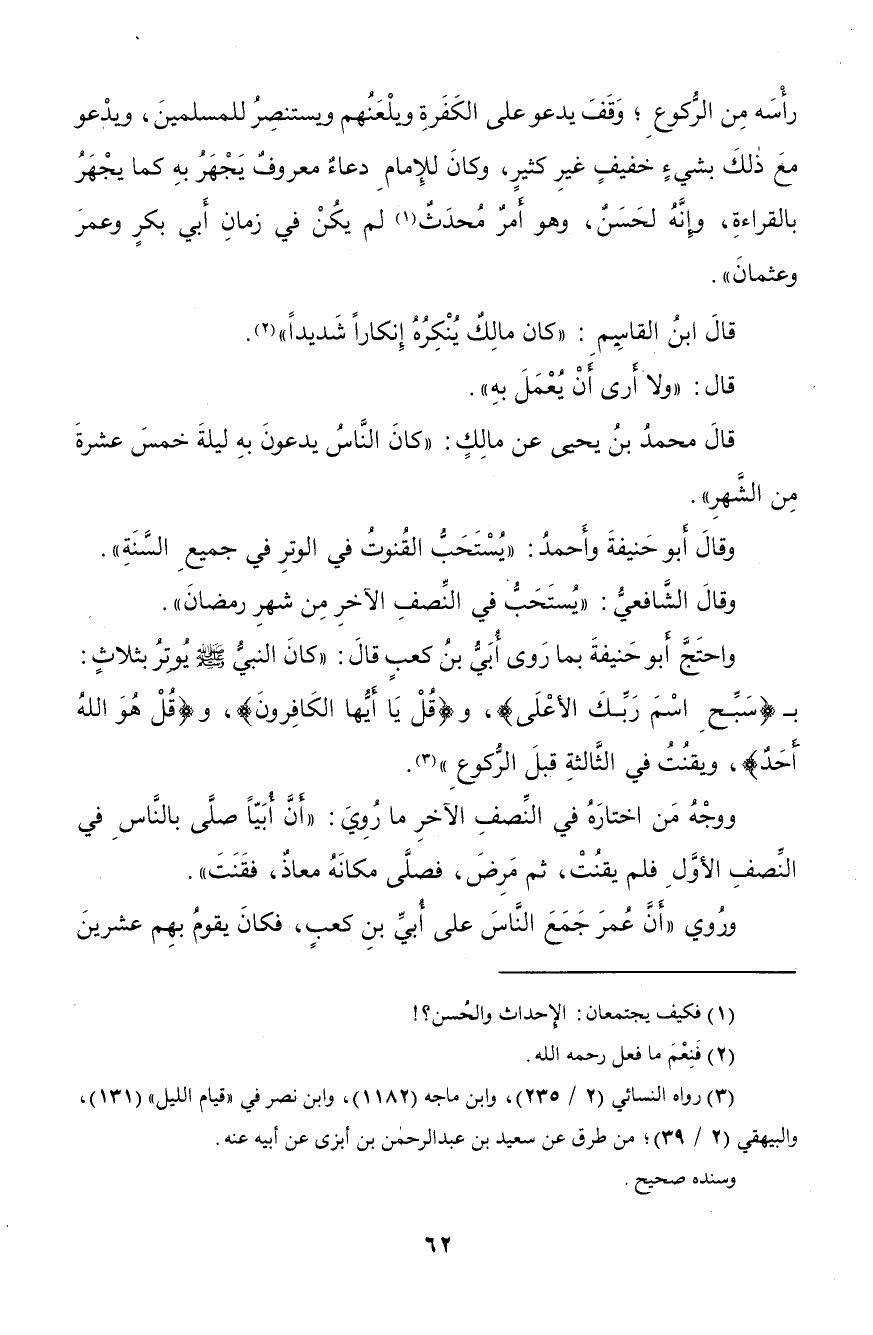 رأْسَه مِن الرُّكوعِ ؛ وَقَفَ يدعو على الكَفَرةِ ويلْعَنُهم ويستنصِرُ للمسلمينَ، ويدْعو
معَ ذٰلكَ بشيءٍ خفيفٍ غيرِ كثيرٍ، وكانَ للإِمامِ دعاءٌ معروفٌ يَجْهَرُ بهِ كما يجْهَرُ
بالقراءةِ، وإِنَّهُ لحَسَنٌ، وهو أَمرٌ مُحدَثٌ(١) لم يكُنْ في زمانِ أَبي بكرٍ وعمرَ
وعثمانَ».
قالَ ابنُ القاسِمِ : «كان مالِكٌ يُنْكِرُهُ إِنكاراً شَديداً»(٢).
قال: «ولا أَرى أَنْ يُعْمَلَ بهِ».
قالَ محمدُ بنُ يحيى عن مالِكٍ: «كانَ النَّاسُ يدعونَ بهِ ليلةَ خمسَ عشرةَ
مِن الشَّهرِ».
وقالَ أَبو حَنيفةَ وأَحمدُ: «يُسْتَحَبُّ القُنوتُ في الوترِ في جميعِ السَّنَةِ».
وقالَ الشَّافعيُّ: «يُستَحَبُّ في النِّصفِ الآخرِ مِن شهرِ رمضانَ».
واحتَجَّ أَبو حَنيفةَ بما رَوى أُبَيُّ بنُ كعبٍ قالَ: «كانَ النبيُّ ﷺ يُوتِرُ بثلاثٍ:
بـ ﴿سَبِّحِ اسْمَ رَبِّكَ الأعْلَى﴾، و﴿قُلْ يَا أَيُّها الكَافِرونَ﴾، و﴿قُلْ هُوَ اللهُ
أَحَدٌ﴾، ويقنُتُ في الثَّالثةِ قبلَ الرُّكوعِ»(٣).
ووجْهُ مَن اختارَهُ في النِّصفِ الآخرِ ما رُوِيَ: «أَنَّ أُبَيّاً صلَّى بالنَّاسِ في
النِّصفِ الأوَّلِ فلم يقنُتْ، ثم مَرِضَ، فصلَّى مكانَهُ معاذٌ، فقَنَتَ».
ورُوي «أَنَّ عُمرَ جَمَعَ النَّاسَ على أُبيِّ بنِ كعبٍ، فكانَ يقومُ بهِم عشرينَ
(١) فكيف يجتمعان: الإِحداث والحُسن؟!
(٢) فَنِعْمَ ما فعل رحمه الله.
(٣) رواه النسائي (٢ / ٢٣٥)، وابن ماجه (١١٨٢)، وابن نصر في «قيام الليل» (١٣١)،
والبيهقي (٢ / ٣٩)؛ من طرق عن سعيد بن عبدالرحمٰن بن أبزى عن أبيه عنه.
وسنده صحيح.
٦٢